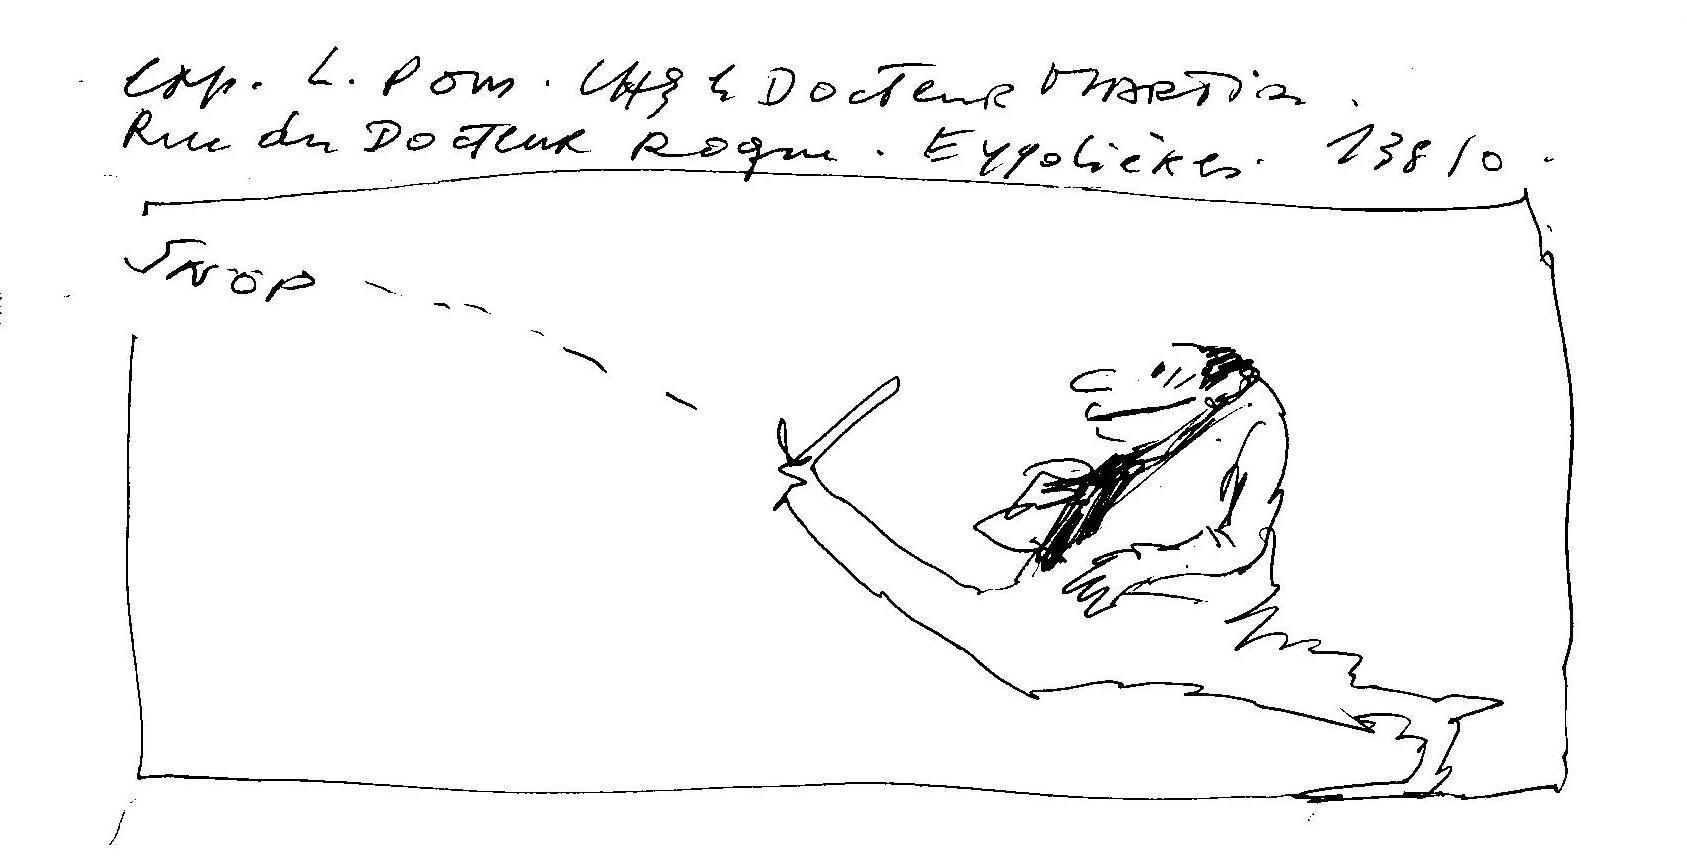 exp. L. Pons. chez le Docteur MARTin.
Rue du Docteur Roque. Eygalières. 13810.
SNOP